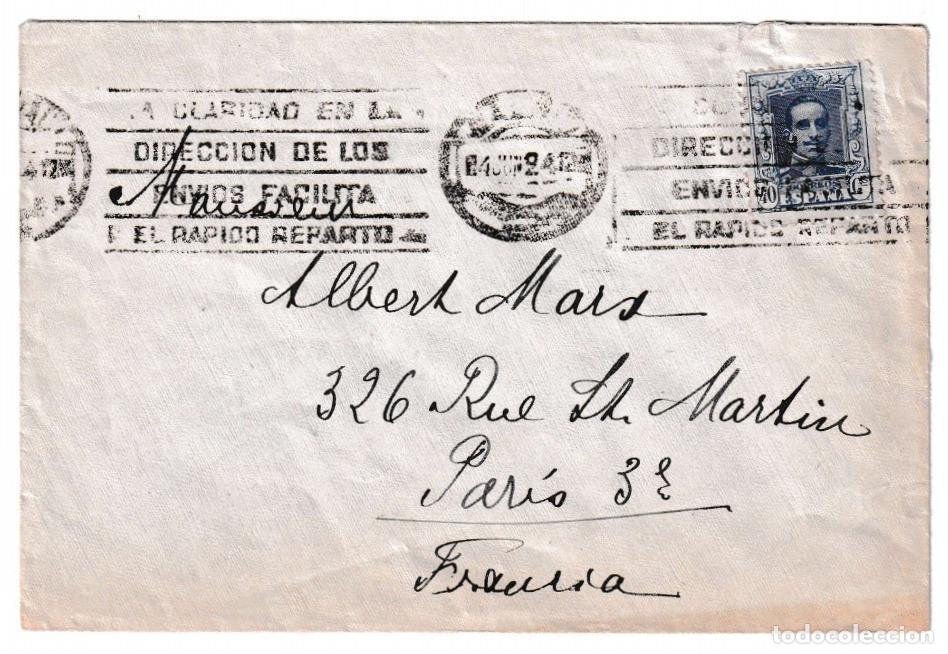 A CLARIDAD EN LA
DIRECCION DE LOS
ENVIOS FACILITA
EL RAPIDO REPARTO
24
DIRECCI
ENVIO TA
EL RAPIDO REPARTO
40 Cs
ESPAÑA
Monsieur
Albert Marx
326 Rue St. Martin
París 3e
Francia
todocoleccion